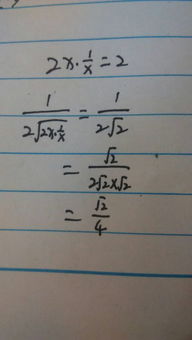 2x·1/x=2
1/(2√(2x·1/x))=1/(2√2)
=√2/(2√2×√2)
=√2/4